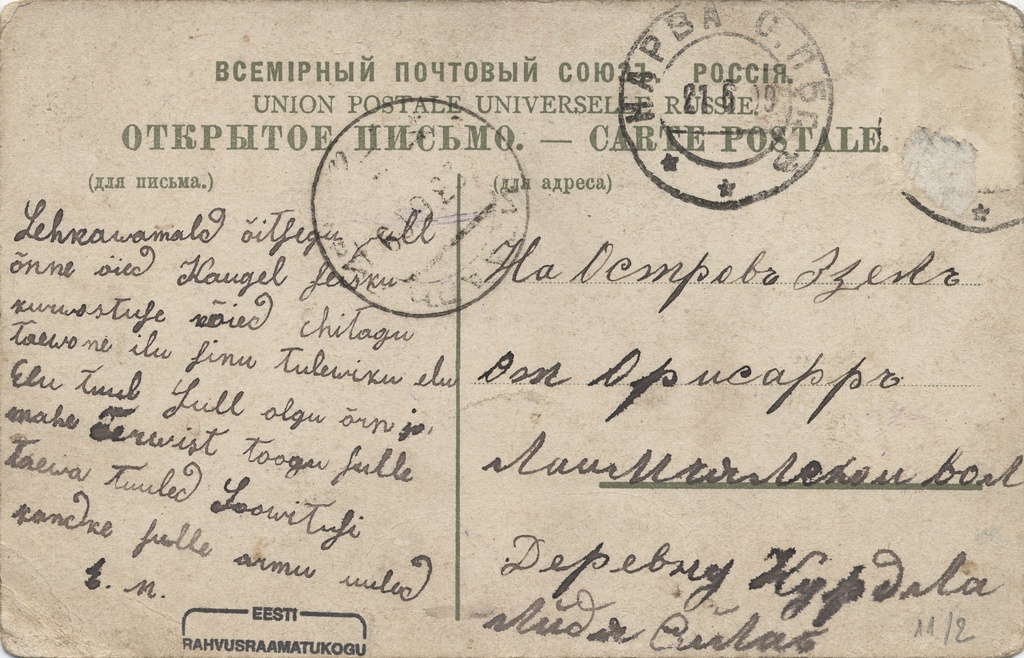 ВСЕМІРНЫЙ ПОЧТОВЫЙ СОЮЗЪ. РОССІЯ.
UNION POSTALE UNIVERSELLE RUSSIE.
ОТКРЫТОЕ ПИСЬМО. — CARTE POSTALE.
НАРВА С.ПБГ.
21.6.09
(для письма.)
(для адреса)
Lehkawamald õitsegu sull
õnne õied Kaugel seisku
kurwastuse õied ehitagu
taewane ilu sinu tulewiku elu
Elu tuul Sull olgu õrn ja
mahe Terwist toogu sulle
taewa tuuled Soowitusi
kandke sulle armu
На Островъ Эзель
От Орисаръ
вол
Деревну Курдла
Лидя
11/2
EESTI
RAHVUSRAAMATUKOGU